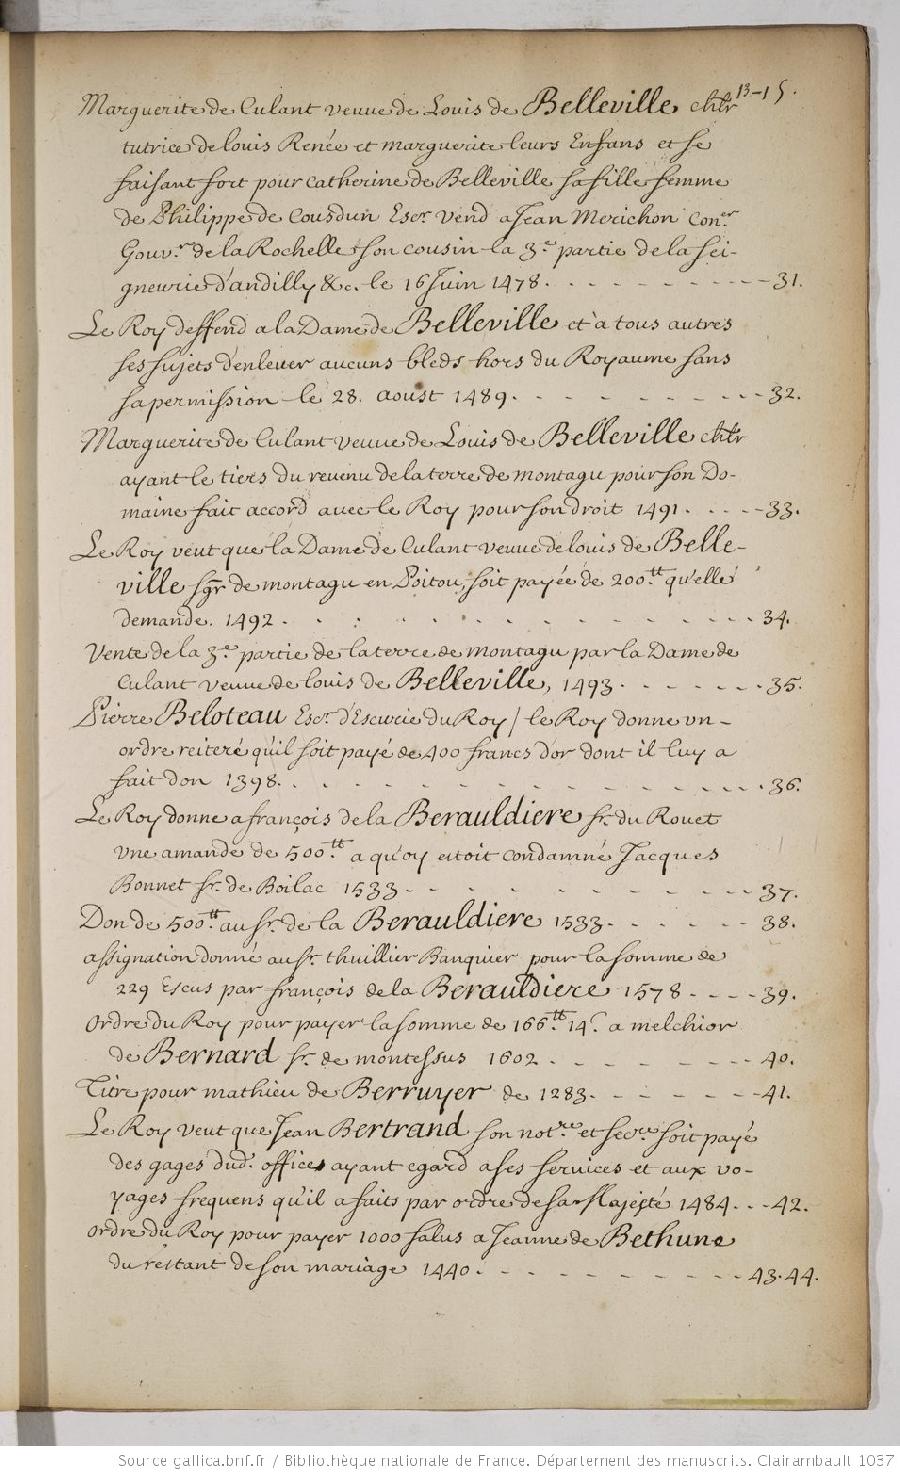 13-15.
Marguerite de Culant veuve de Louis de Belleville chlr
tutrice de louis Renée et marguerite leurs Enfans et se
faisant fort pour catherine de Belleville sa fille femme
de Philippe de Cousdun Escr. vend a Jean Merichon Coner.
Gouvr. de la Rochelle son cousin la 3e. partie de la sei-
gneurie d'andilly &c. le 16 Juin 1478. - - - 31.
Le Roy deffend a la Dame de Belleville et à tous autres
ses sujets d'enlever aucuns bleds hors du Royaume sans
sa permission le 28. aoust 1489. - - - 32.
Marguerite de Culant veuve de Louis de Belleville chlr
ayant le tiers du revenu de la terre de montagu pour son Do-
maine fait accord avec le Roy pour son droit 1491. - - - 33.
Le Roy veut que la Dame de Culant veuve de louis de Belle-
ville sgr de montagu en Poitou, soit payée de 200.tt qu'elle
demande. 1492. - - - 34.
Vente de la 3e. partie de la terre de montagu par la Dame de
Culant veuve de louis de Belleville, 1493. - - - 35.
Pierre Beloteau Escr. d'Escurie du Roy / le Roy donne un
ordre reiteré qu'il soit payé de 400 francs d'or dont il luy a
fait don 1398. - - - 36.
Le Roy donne a françois de la Berauldiere sr. du Rouet
une amande de 500.tt a quoy etoit condamné Jacques
Bonnet sr. de Boilac 1533 - - - 37.
Don de 500.tt au sr. de la Berauldiere 1533. - - - 38.
assignation donné au sr. thuillier Banquier pour la somme de
229 Escus par françois de la Berauldiere 1578 - - - 39.
ordre du Roy pour payer la somme de 166.tt 14s a melchior
de Bernard sr. de montessus 1602. - - - 40.
Titre pour mathieu de Berruyer de 1283. - - - 41.
Le Roy veut que Jean Bertrand son notre. et secre. soit payé
des gages dud. offices ayant egard a ses services et aux vo-
yages frequens qu'il a faits par ordre de sa Majesté 1484. - - - 42.
ordre du Roy pour payer 1000 salus a Jeanne de Bethune
du restant de son mariage 1440. - - - 43.44.
Source gallica.bnf.fr / Bibliothèque nationale de France. Département des manuscrits. Clairambault 1037